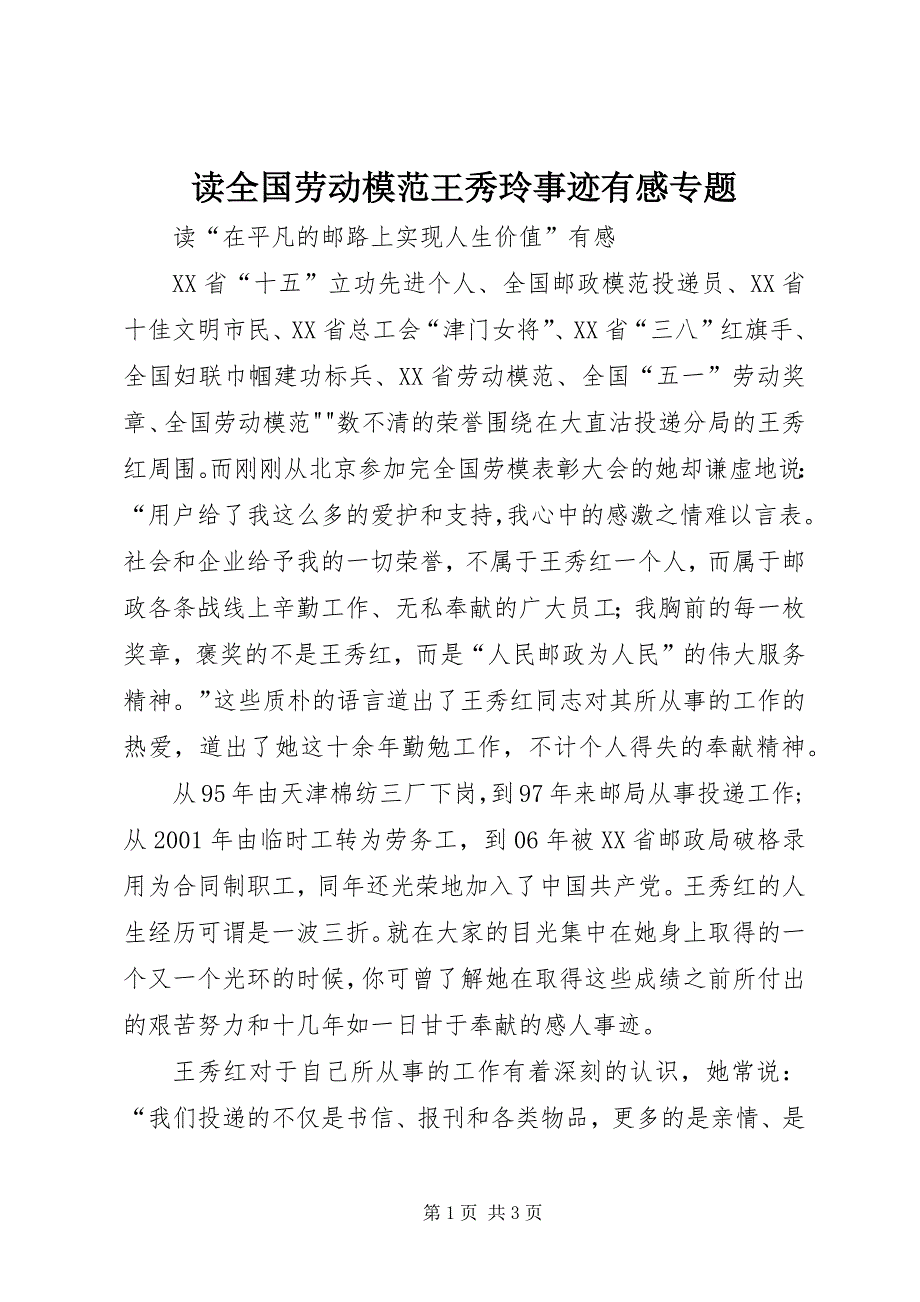 读全国劳动模范王秀玲事迹有感专题
读“在平凡的邮路上实现人生价值”有感
XX 省“十五”立功先进个人、全国邮政模范投递员、XX 省
十佳文明市民、XX 省总工会“津门女将”、XX 省“三八”红旗手、
全国妇联巾帼建功标兵、XX 省劳动模范、全国“五一”劳动奖
章、全国劳动模范""数不清的荣誉围绕在大直沽投递分局的王秀
红周围。而刚刚从北京参加完全国劳模表彰大会的她却谦虚地说：
“用户给了我这么多的爱护和支持，我心中的感激之情难以言表。
社会和企业给予我的一切荣誉，不属于王秀红一个人，而属于邮
政各条战线上辛勤工作、无私奉献的广大员工；我胸前的每一枚
奖章，褒奖的不是王秀红，而是“人民邮政为人民”的伟大服务
精神。”这些质朴的语言道出了王秀红同志对其所从事的工作的
热爱，道出了她这十余年勤勉工作，不计个人得失的奉献精神。
从 95 年由天津棉纺三厂下岗，到 97 年来邮局从事投递工作；
从 2001 年由临时工转为劳务工，到 06 年被 XX 省邮政局破格录
用为合同制职工，同年还光荣地加入了中国共产党。王秀红的人
生经历可谓是一波三折。就在大家的目光集中在她身上取得的一
个又一个光环的时候，你可曾了解她在取得这些成绩之前所付出
的艰苦努力和十几年如一日甘于奉献的感人事迹。
王秀红对于自己所从事的工作有着深刻的认识，她常说：
“我们投递的不仅是书信、报刊和各类物品，更多的是亲情、是
第 1 页 共 3 页